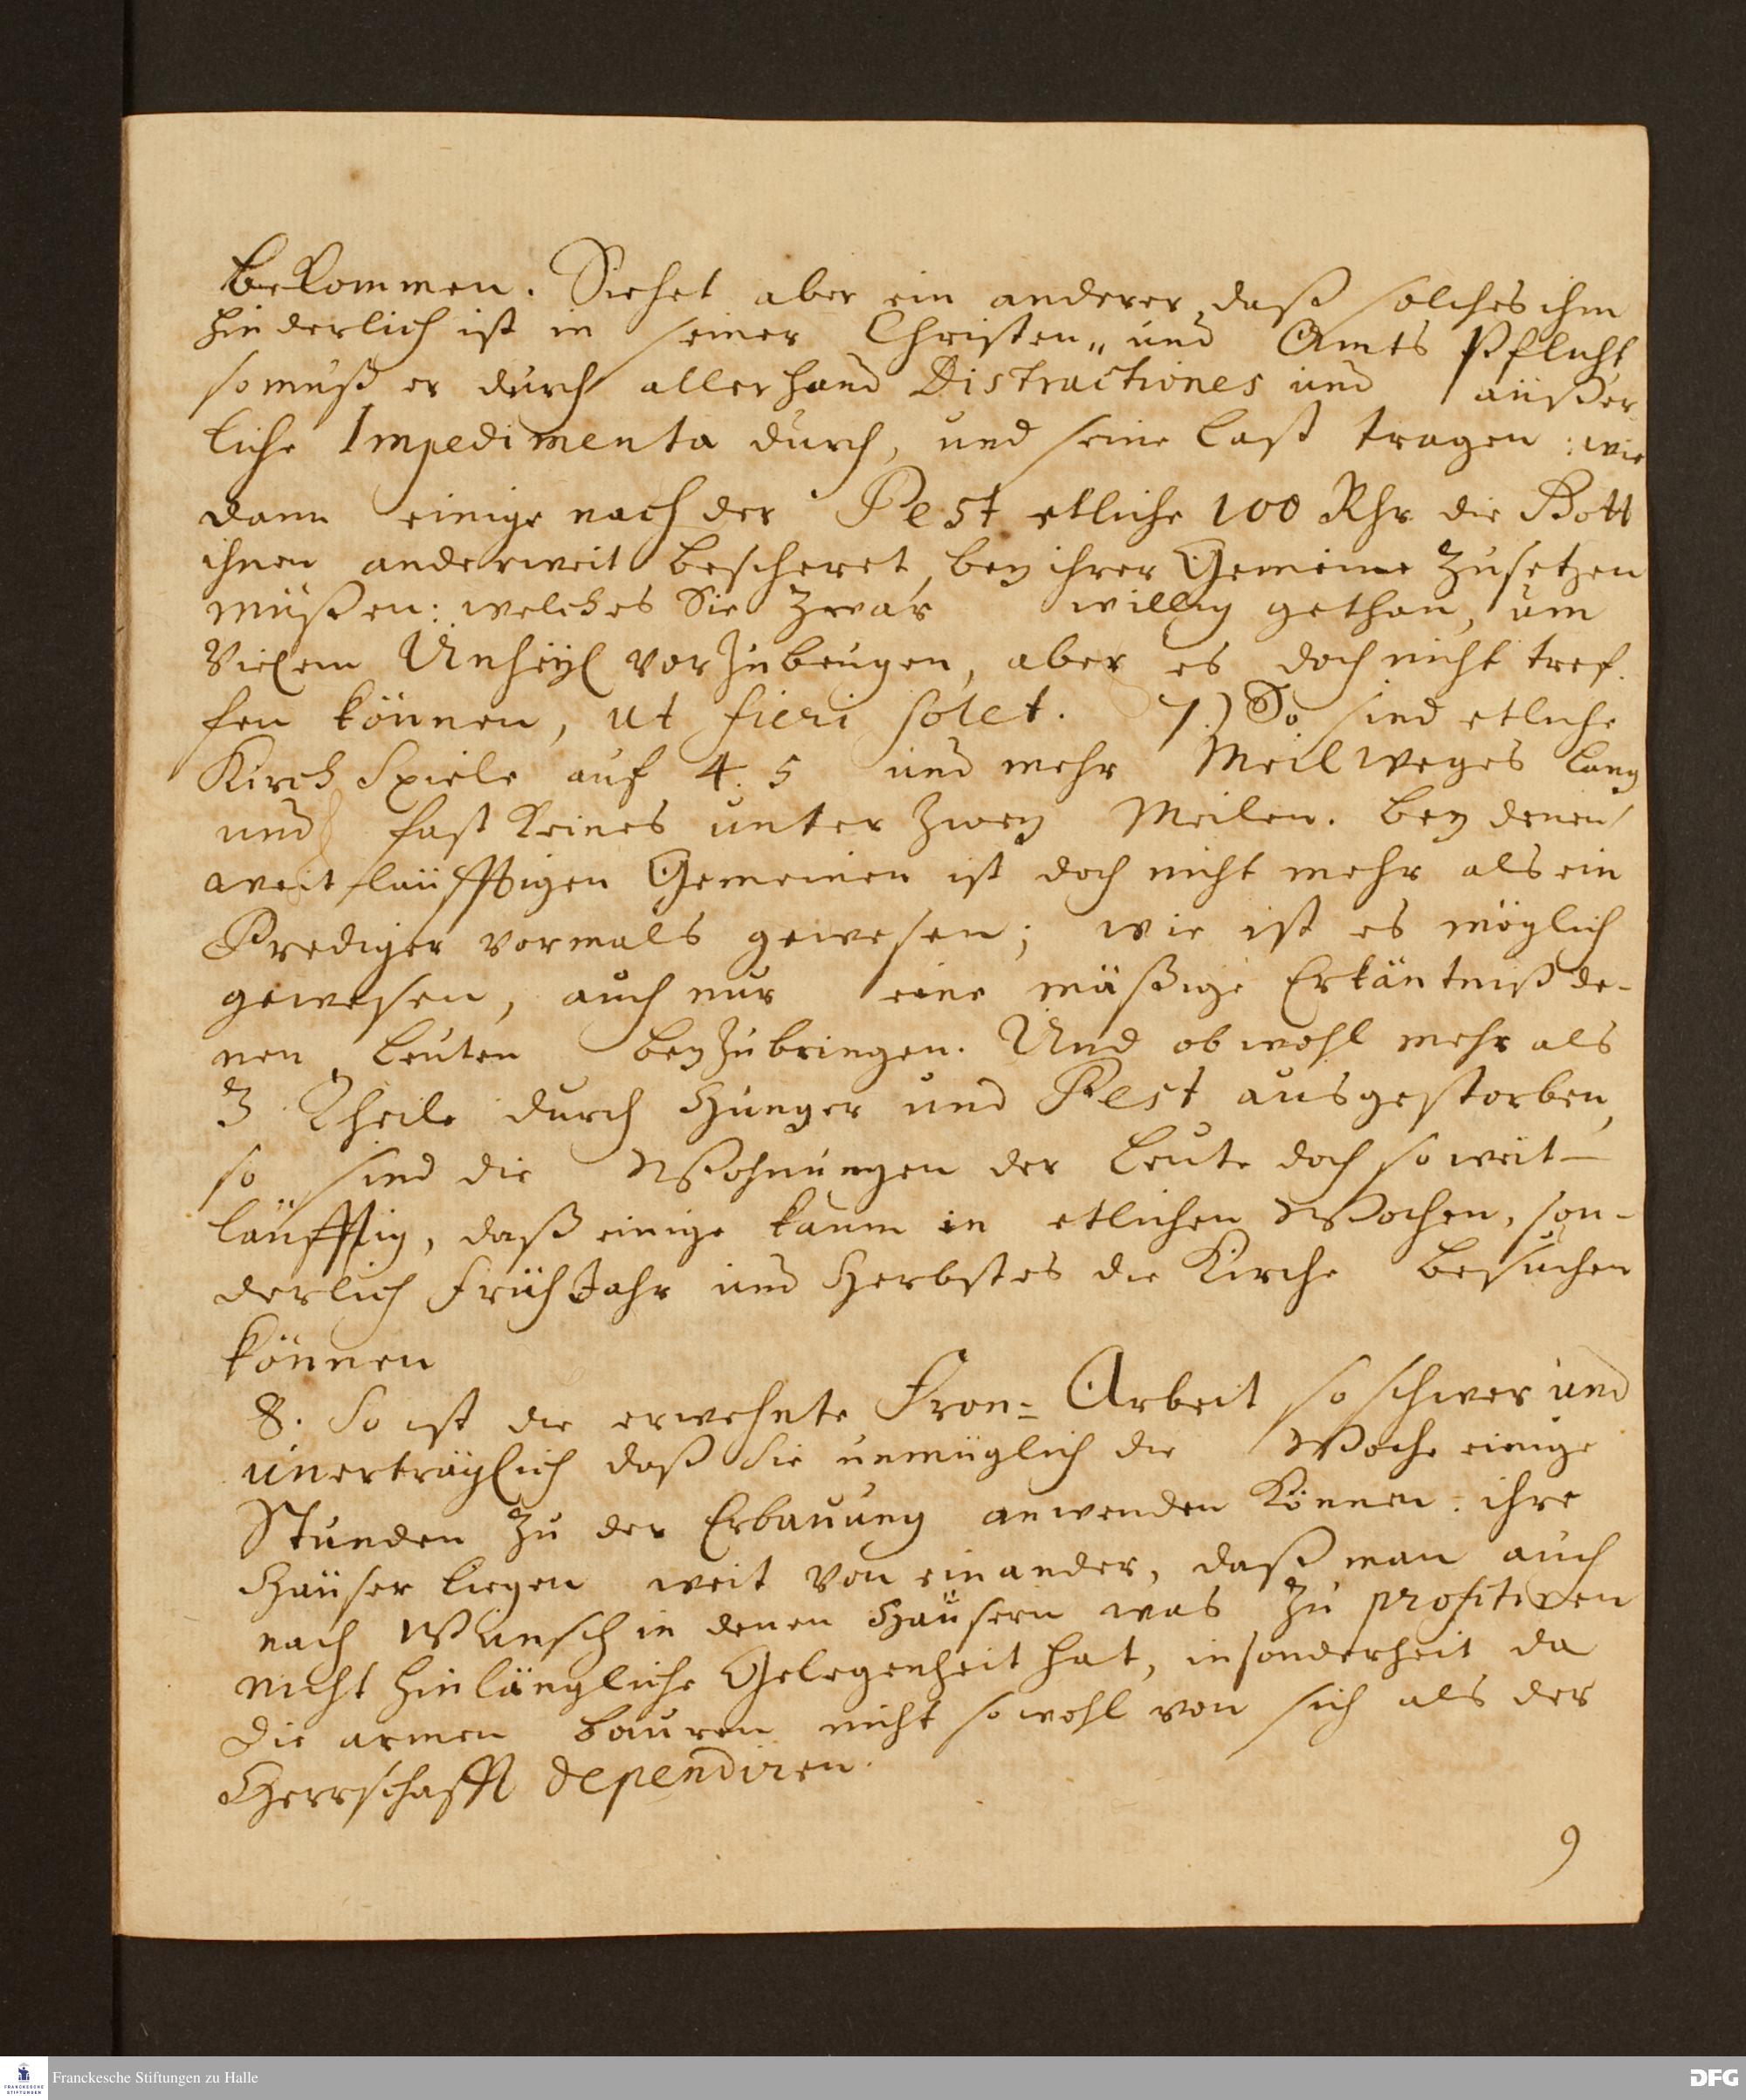 bekommen. Siehet aber ein anderer, daß solches ihm
hinderlich ist in seiner Christen„ und Amts Pflicht,
so muß er durch allerhand Distractiones und äußer
liche Impedimenta durch, und seine Last tragen: wie
dann einige nach der Pest etliche 100 Rhr die Gott
ihnen anderweit bescheret, bey ihrer Gemeine Zusetzen
müßen: welches Sie Zwar willig gethan, um
Vielem Unheyl vorzubeugen, aber es doch nicht tref.
fen können, ut fieri solet. 7.) So sind etliche
Kirch Spiele auf 4. 5 und mehr Meilweges lang
und fast keines unter Zwey Meilen. bey denen
weitläufftigen Gemeinen ist doch nicht mehr als ein
Prediger vormals gewesen; wie ist es möglich
gewesen, auch nur eine mäßige Erkäntniß de-
nen Leuten beyzubringen. Und obwohl mehr als
3 Theile durch Hunger und Pest ausgestorben,
so sind die Wohnungen der Leute doch so weit-
läufftig, daß einige kaum in etlichen Wochen, son-
derlich FrühJahr und Herbstes die Kirche besuchen
können
8. So ist die erwehnte Fron= Arbeit so schwer und
unerträylich daß Sie unmüglich die Woche einige
Stunden Zu der Erbauung anwenden können: ihre
Häuser liegen weit von einander, daß man auch
nach Wunsch in denen Häusern was Zu profitiren
nicht hinlängliche Gelegenheit hat, insonderheit da
die armen bauren nicht sowohl von sich als der
Herrschafft dependiren.
9
Franckesche Stiftungen zu Halle
FRANCKESCHE
STIFTUNGEN
DFG